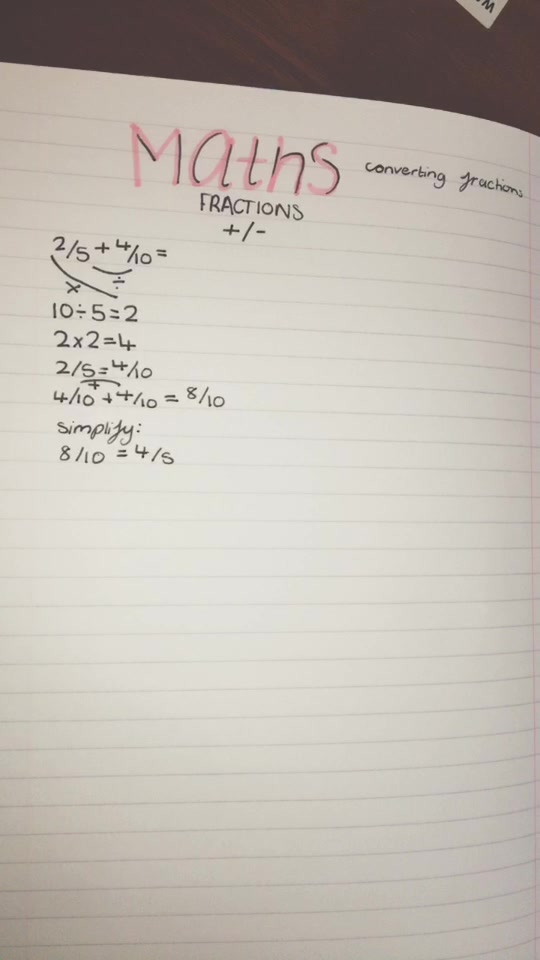 Maths converting fractions
FRACTIONS
+/-
2/5 + 4/10 =
× ÷
10÷5=2
2x2=4
2/5=4/10
+
4/10 + 4/10 = 8/10
simplify:
8/10 = 4/5